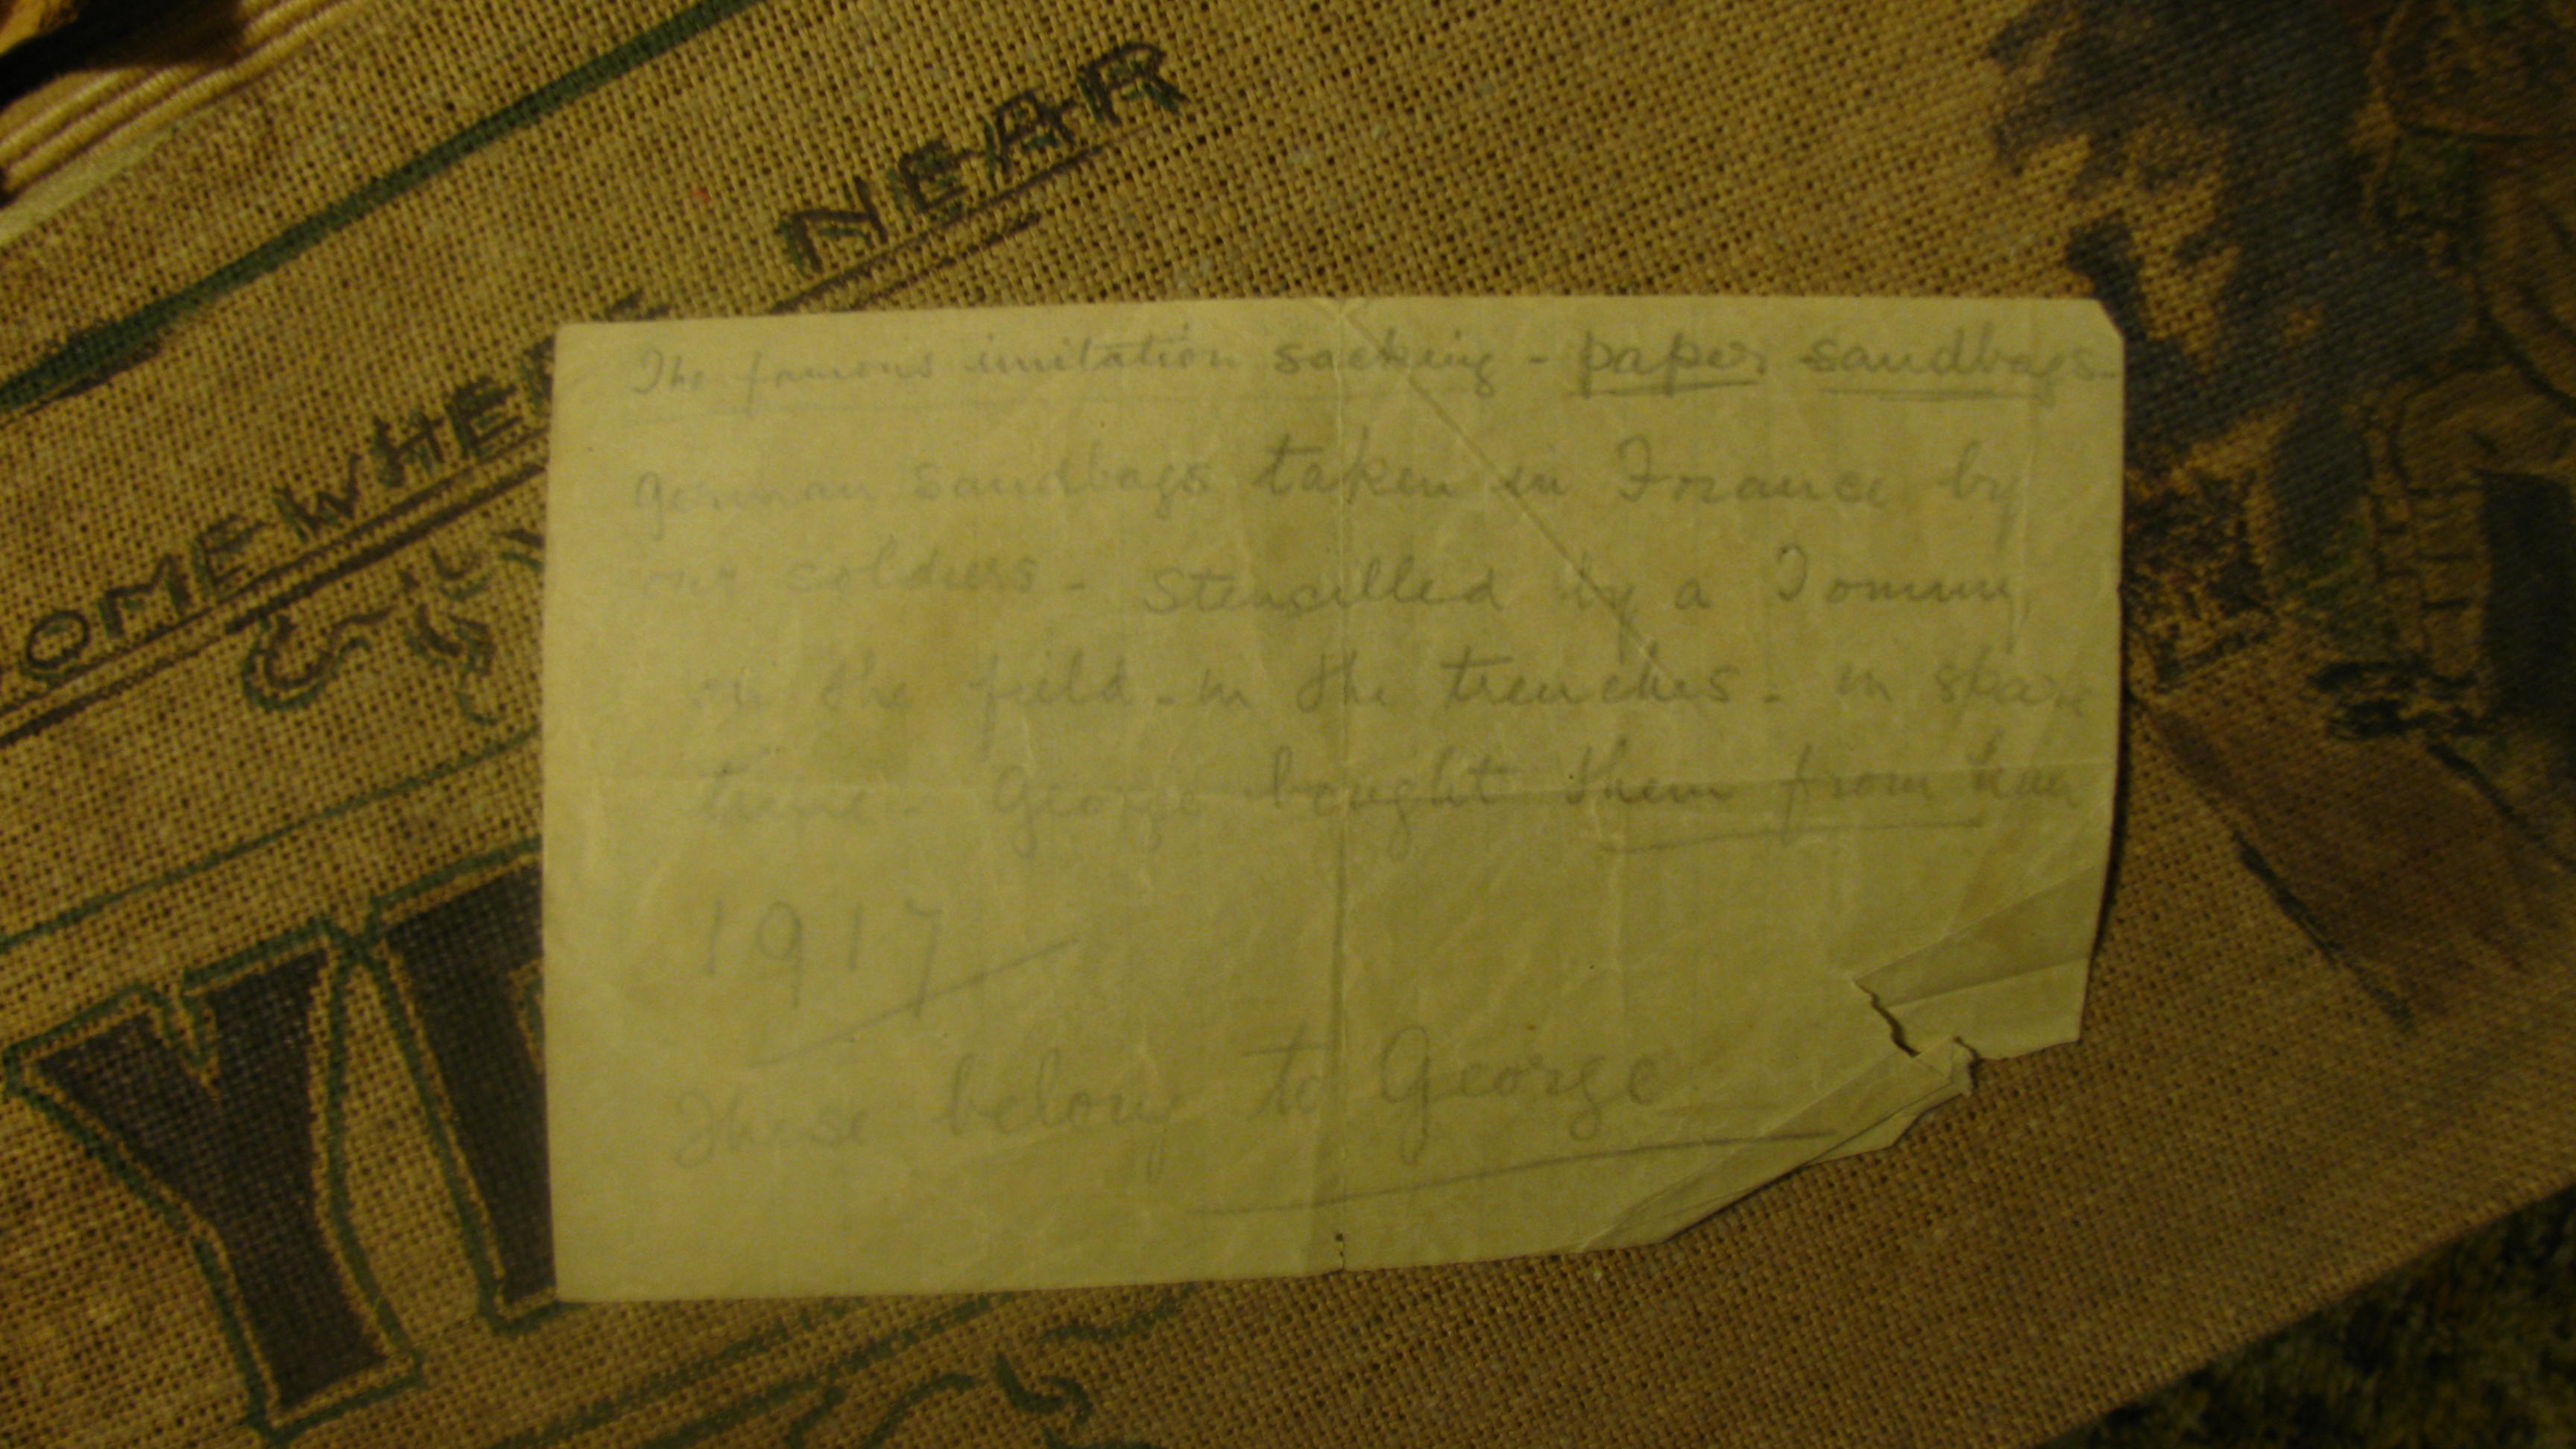 SOMEWHERE NEAR
Y
The famous imitation sacking - paper sandbags.
German sandbags taken in France by
our soldiers - stencilled by a Tommy,
on the field - in the trenches - in spare
time - George bought them from him
1917
These belong to George